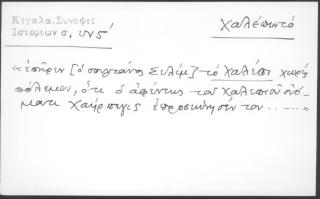 Κιγαλα, Συνοψις
Ιστοριων σ, υν5΄
Χαλέπι τό
«ἐπῆρεν [ὁ σουλτάνος Σελίμ] τό Χαλέπι χωρίς
πόλεμον, ὅτι ὁ ἀφέντης τοῦ Χαλεπιοῦ ὀνό-
ματι Χαήρπεγις ἐπροσκύνησέν τον ... »